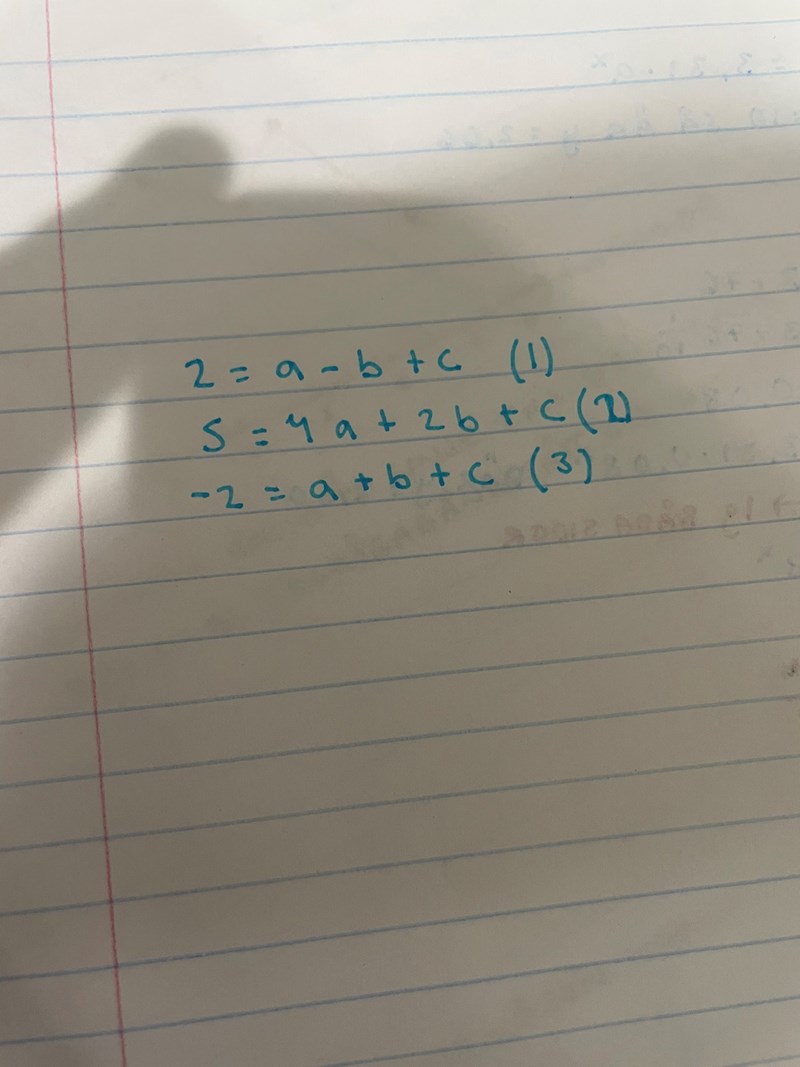 2 = a - b + c (1)
5 = 4a + 2b + c (2)
-2 = a + b + c (3)